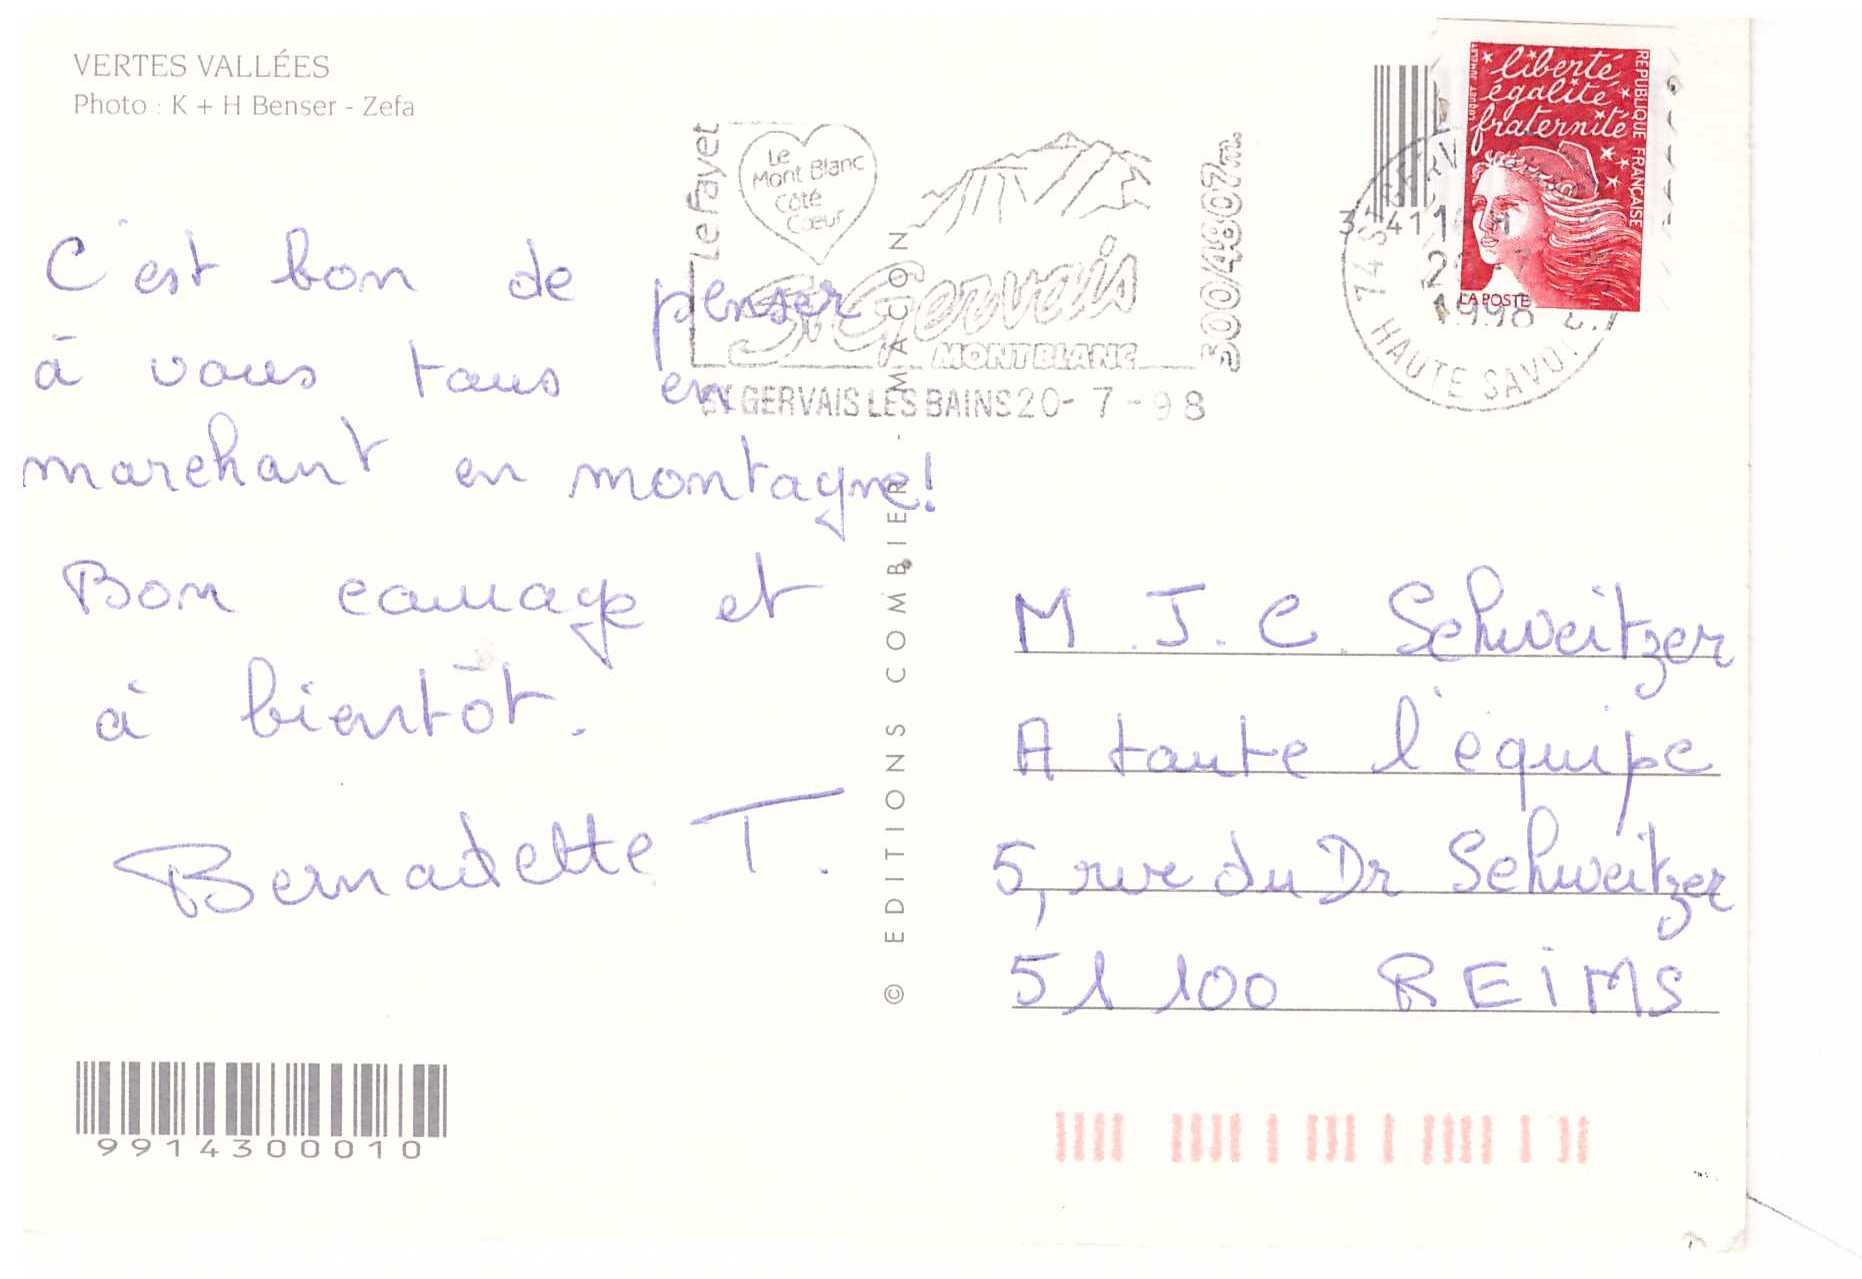 VERTES VALLÉES
Photo : K + H Benser - Zefa
C'est bon de penser
à vous tous en
marchant en montagne!
Bon courage et
à bientôt.
Bernadette T.
9914300010
© EDITIONS COMBIER - MACON
Le Fayet
Le
Mont Blanc
Côté
Cœur
St Gervais
MONT BLANC
500/4807m.
ST GERVAIS LES BAINS 20-7-98
liberté
égalité
fraternité
RÉPUBLIQUE FRANÇAISE
LA POSTE
1998
HAUTE SAVOI
M J.C. Schweitzer
A toute l'équipe
5, rue du Dr Schweitzer
51 100 REIMS